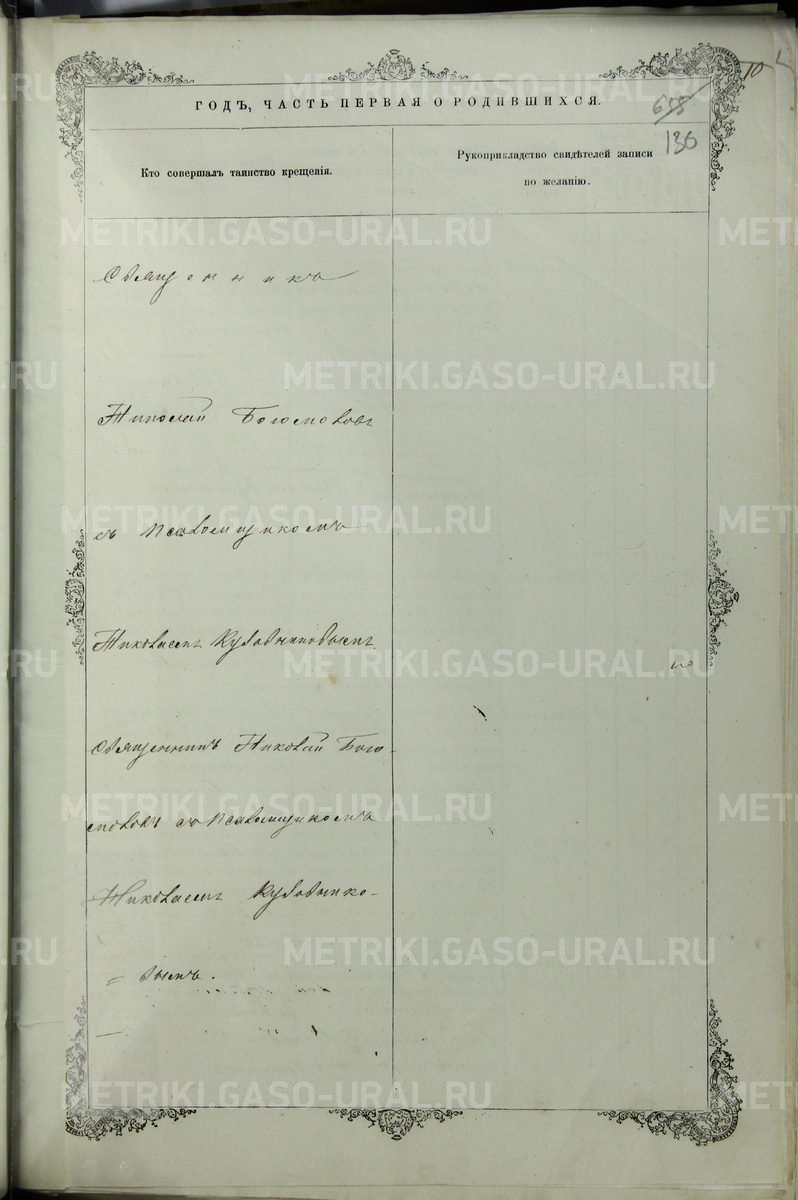 10
ГОДЪ, ЧАСТЬ ПЕРВАЯ О РОДИВШИХСЯ.
655
136
Кто совершалъ таинство крещенія.
Рукоприкладство свидѣтелей записи
по желанію.
Священникъ
Николай Богословъ
съ псаломщикомъ
Николаемъ
Священникъ Николай Бого-
словъ съ псаломщикомъ
Николаемъ
METRIKI.GASO-URAL.RU